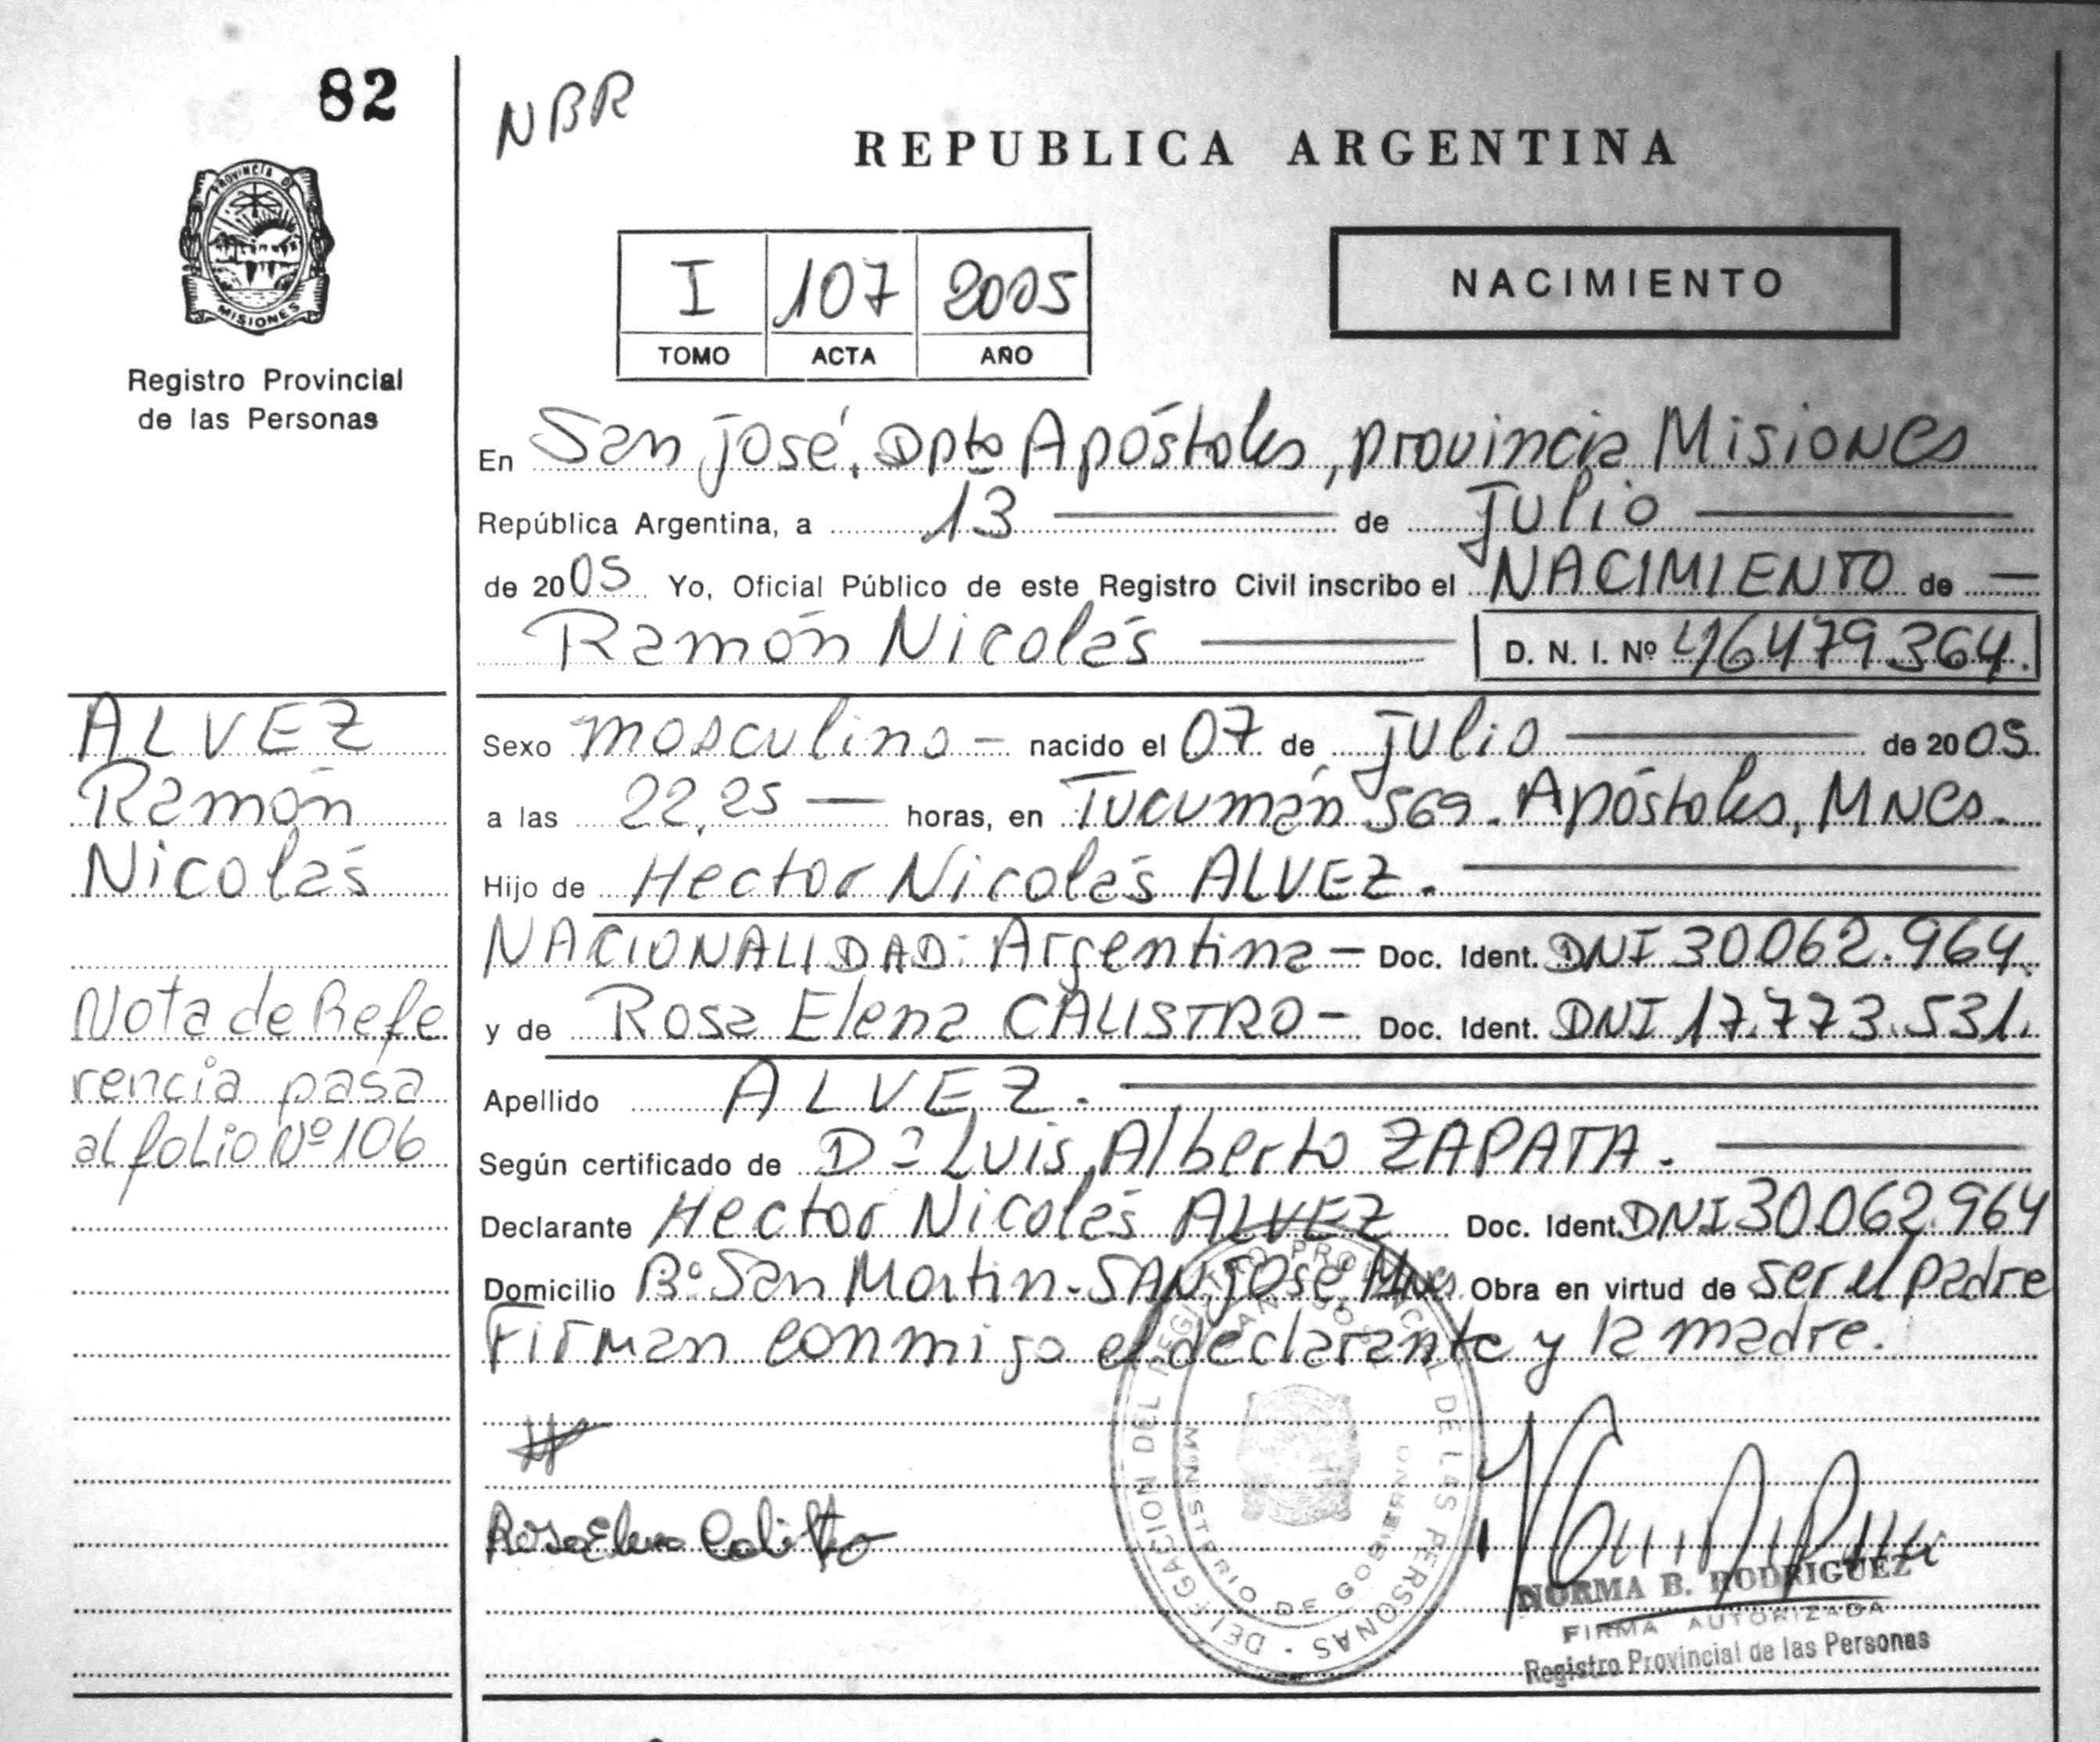 82
NBR
REPUBLICA ARGENTINA
PROVINCIA D
MISIONES
Registro Provincial
de las Personas
I 107 2005
TOMO ACTA AÑO
NACIMIENTO
En San José, Dpto Apóstoles, provincia Misiones
República Argentina, a 13 de Julio
de 2005 Yo, Oficial Público de este Registro Civil inscribo el NACIMIENTO de
Ramón Nicolás D. N. I. Nº 46479364.
ALVEZ
Ramón
Nicolás
Nota de Refe
rencia pasa
al folio Nº 106
Sexo masculino - nacido el 07 de Julio de 2005.
a las 22,25 horas, en Tucumán 569. Apóstoles, Mnes.
Hijo de Hector Nicolás ALVEZ.
NACIONALIDAD: Argentina - Doc. Ident. DNI 30.062.964.
y de Rosa Elena CALISTRO - Doc. Ident. DNI 17.773.531.
Apellido ALVEZ.
Según certificado de Dr Luis Alberto ZAPATA.
Declarante Hector Nicolás ALVEZ Doc. Ident. DNI 30.062.964
Domicilio Bº San Martin - SAN JOSÉ Mnes. Obra en virtud de ser el padre
Firman conmigo el declarante y la madre.
DELEGACION DEL REGISTRO PROVINCIAL DE LAS PERSONAS -
SAN JOSE
MINISTERIO DE GOBIERNO
NORMA B. RODRIGUEZ
FIRMA AUTORIZADA
Registro Provincial de las Personas